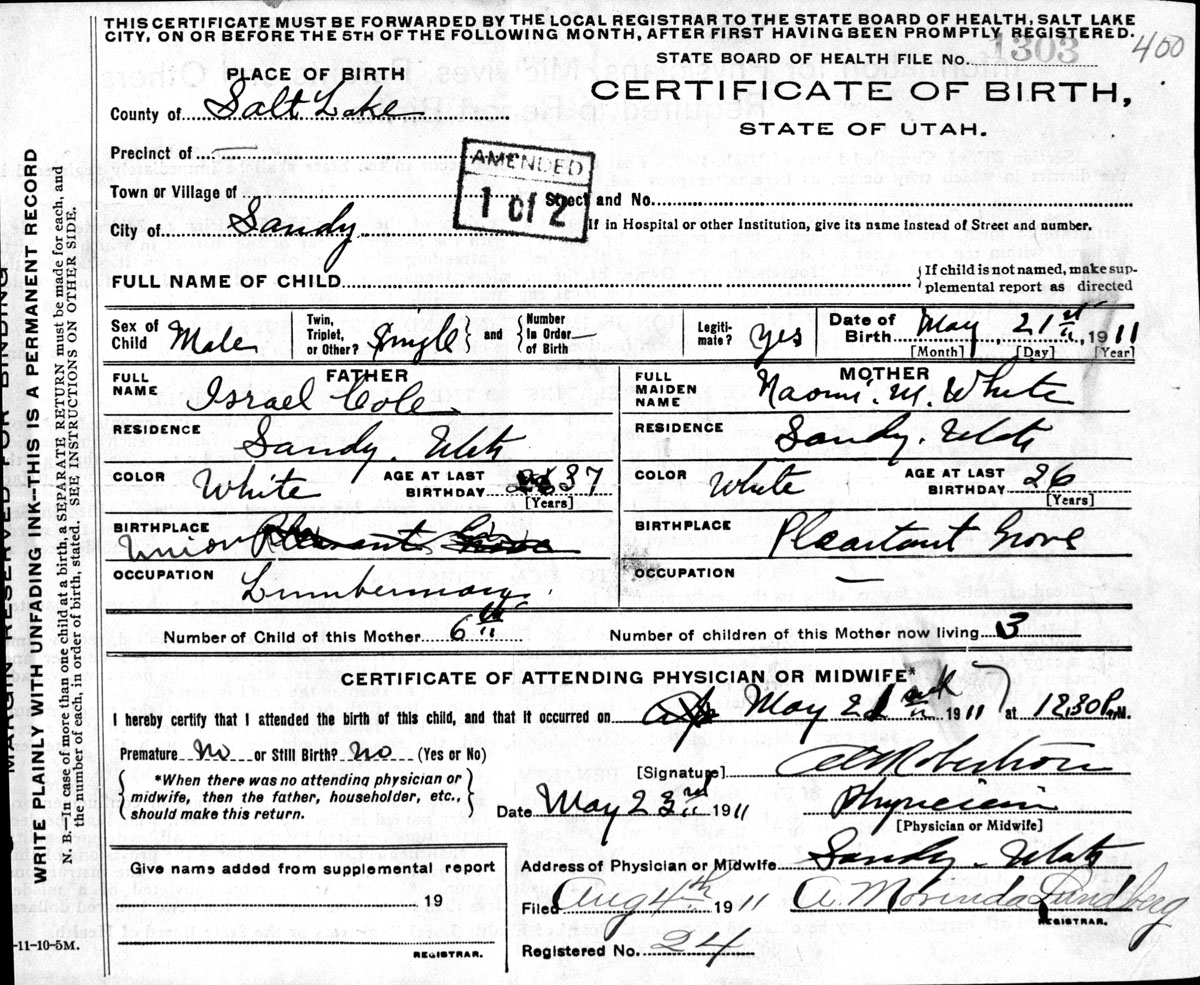 THIS CERTIFICATE MUST BE FORWARDED BY THE LOCAL REGISTRAR TO THE STATE BOARD OF HEALTH, SALT LAKE
CITY, ON OR BEFORE THE 5TH OF THE FOLLOWING MONTH, AFTER FIRST HAVING BEEN PROMPTLY REGISTERED.
400
STATE BOARD OF HEALTH FILE No. 1303
PLACE OF BIRTH
CERTIFICATE OF BIRTH,
County of Salt Lake
STATE OF UTAH.
Precinct of —
AMENDED
1 of 2
Town or Village of
Street and No.
City of Sandy
If in Hospital or other Institution, give its name instead of Street and number.
FULL NAME OF CHILD
If child is not named, make sup-
plemental report as directed
Sex of Child Male
Twin, Triplet, or Other? Single and Number In Order of Birth
Legiti-mate? Yes
Date of Birth May 21st, 1911
[Month] [Day] [Year]
FATHER
FULL NAME Israel Cole
RESIDENCE Sandy. Utah
COLOR White
AGE AT LAST BIRTHDAY 37
[Years]
BIRTHPLACE Union Pleasant Grove
OCCUPATION Lumberman
MOTHER
FULL MAIDEN NAME Naomi. M. White
RESIDENCE Sandy. Utah
COLOR White
AGE AT LAST BIRTHDAY 26
[Years]
BIRTHPLACE Pleastant Grove
OCCUPATION —
Number of Child of this Mother 6th
Number of children of this Mother now living 3
CERTIFICATE OF ATTENDING PHYSICIAN OR MIDWIFE*
I hereby certify that I attended the birth of this child, and that it occurred on May 21 1911 at 12:30 P.M.
Premature No or Still Birth? No (Yes or No)
*When there was no attending physician or
midwife, then the father, householder, etc.,
should make this return.
[Signature] Robertson
Date May 23rd 1911
Physician
[Physician or Midwife]
Give name added from supplemental report
19
REGISTRAR.
Address of Physician or Midwife Sandy. Utah
Filed Aug 4th 1911
A Morinda Lundberg
REGISTRAR.
Registered No. 24
-11-10-5M.
MARGIN RESERVED FOR BINDING
WRITE PLAINLY WITH UNFADING INK—THIS IS A PERMANENT RECORD
N. B.—In case of more than one child at a birth, a SEPARATE RETURN must be made for each, and
the number of each, in order of birth, stated. SEE INSTRUCTIONS ON OTHER SIDE.